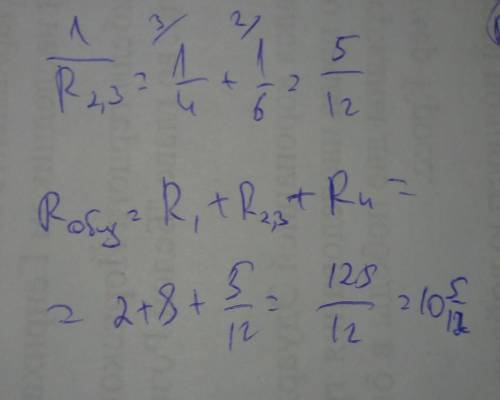 3/ 2/
1/R2,3 = 1/4 + 1/6 = 5/12
Rобщ = R1 + R2,3 + R4 =
= 2+8+ 5/12 = 125/12 = 10 5/12